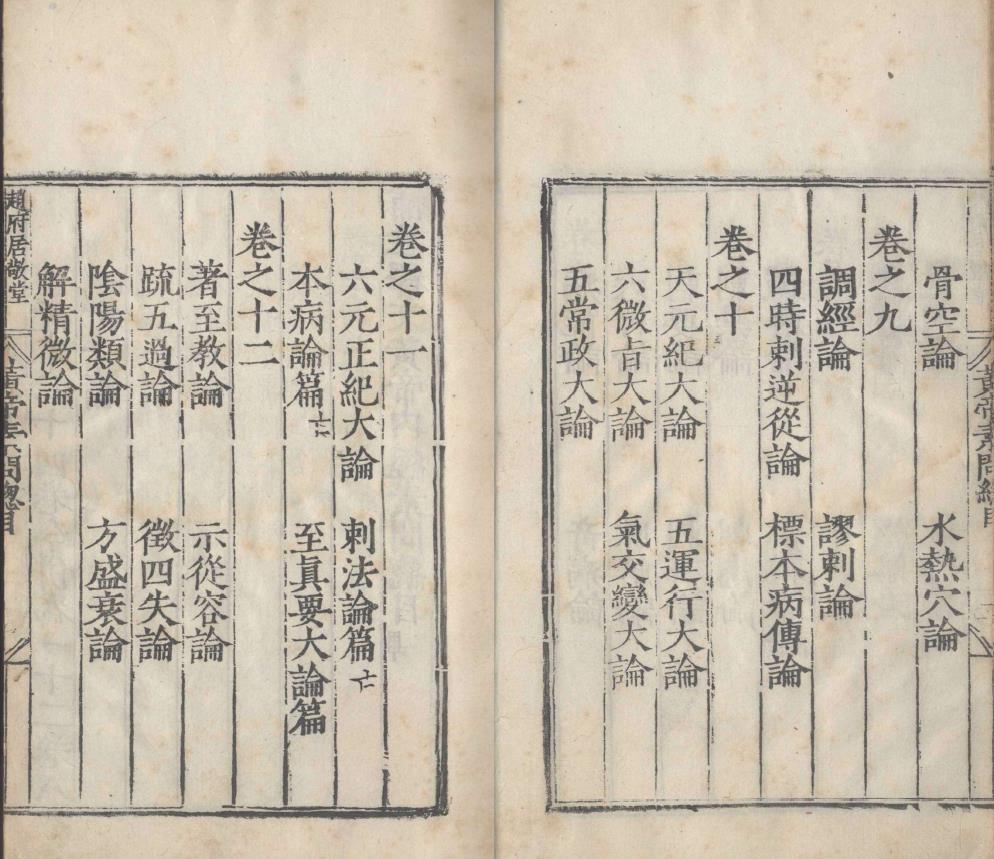 黃帝素問總目
骨空論　水熱穴論
卷之九
調經論　謬刺論
四時刺逆從論　標本病傳論
卷之十
天元紀大論　五運行大論
六微旨大論　氣交變大論
五常政大論
卷之十一
六元正紀大論　刺法論篇亡
本病論篇亡　至真要大論篇
卷之十二
著至教論　示從容論
疏五過論　徵四失論
陰陽類論　方盛衰論
解精微論
趙府居敬堂　黃帝素問總目